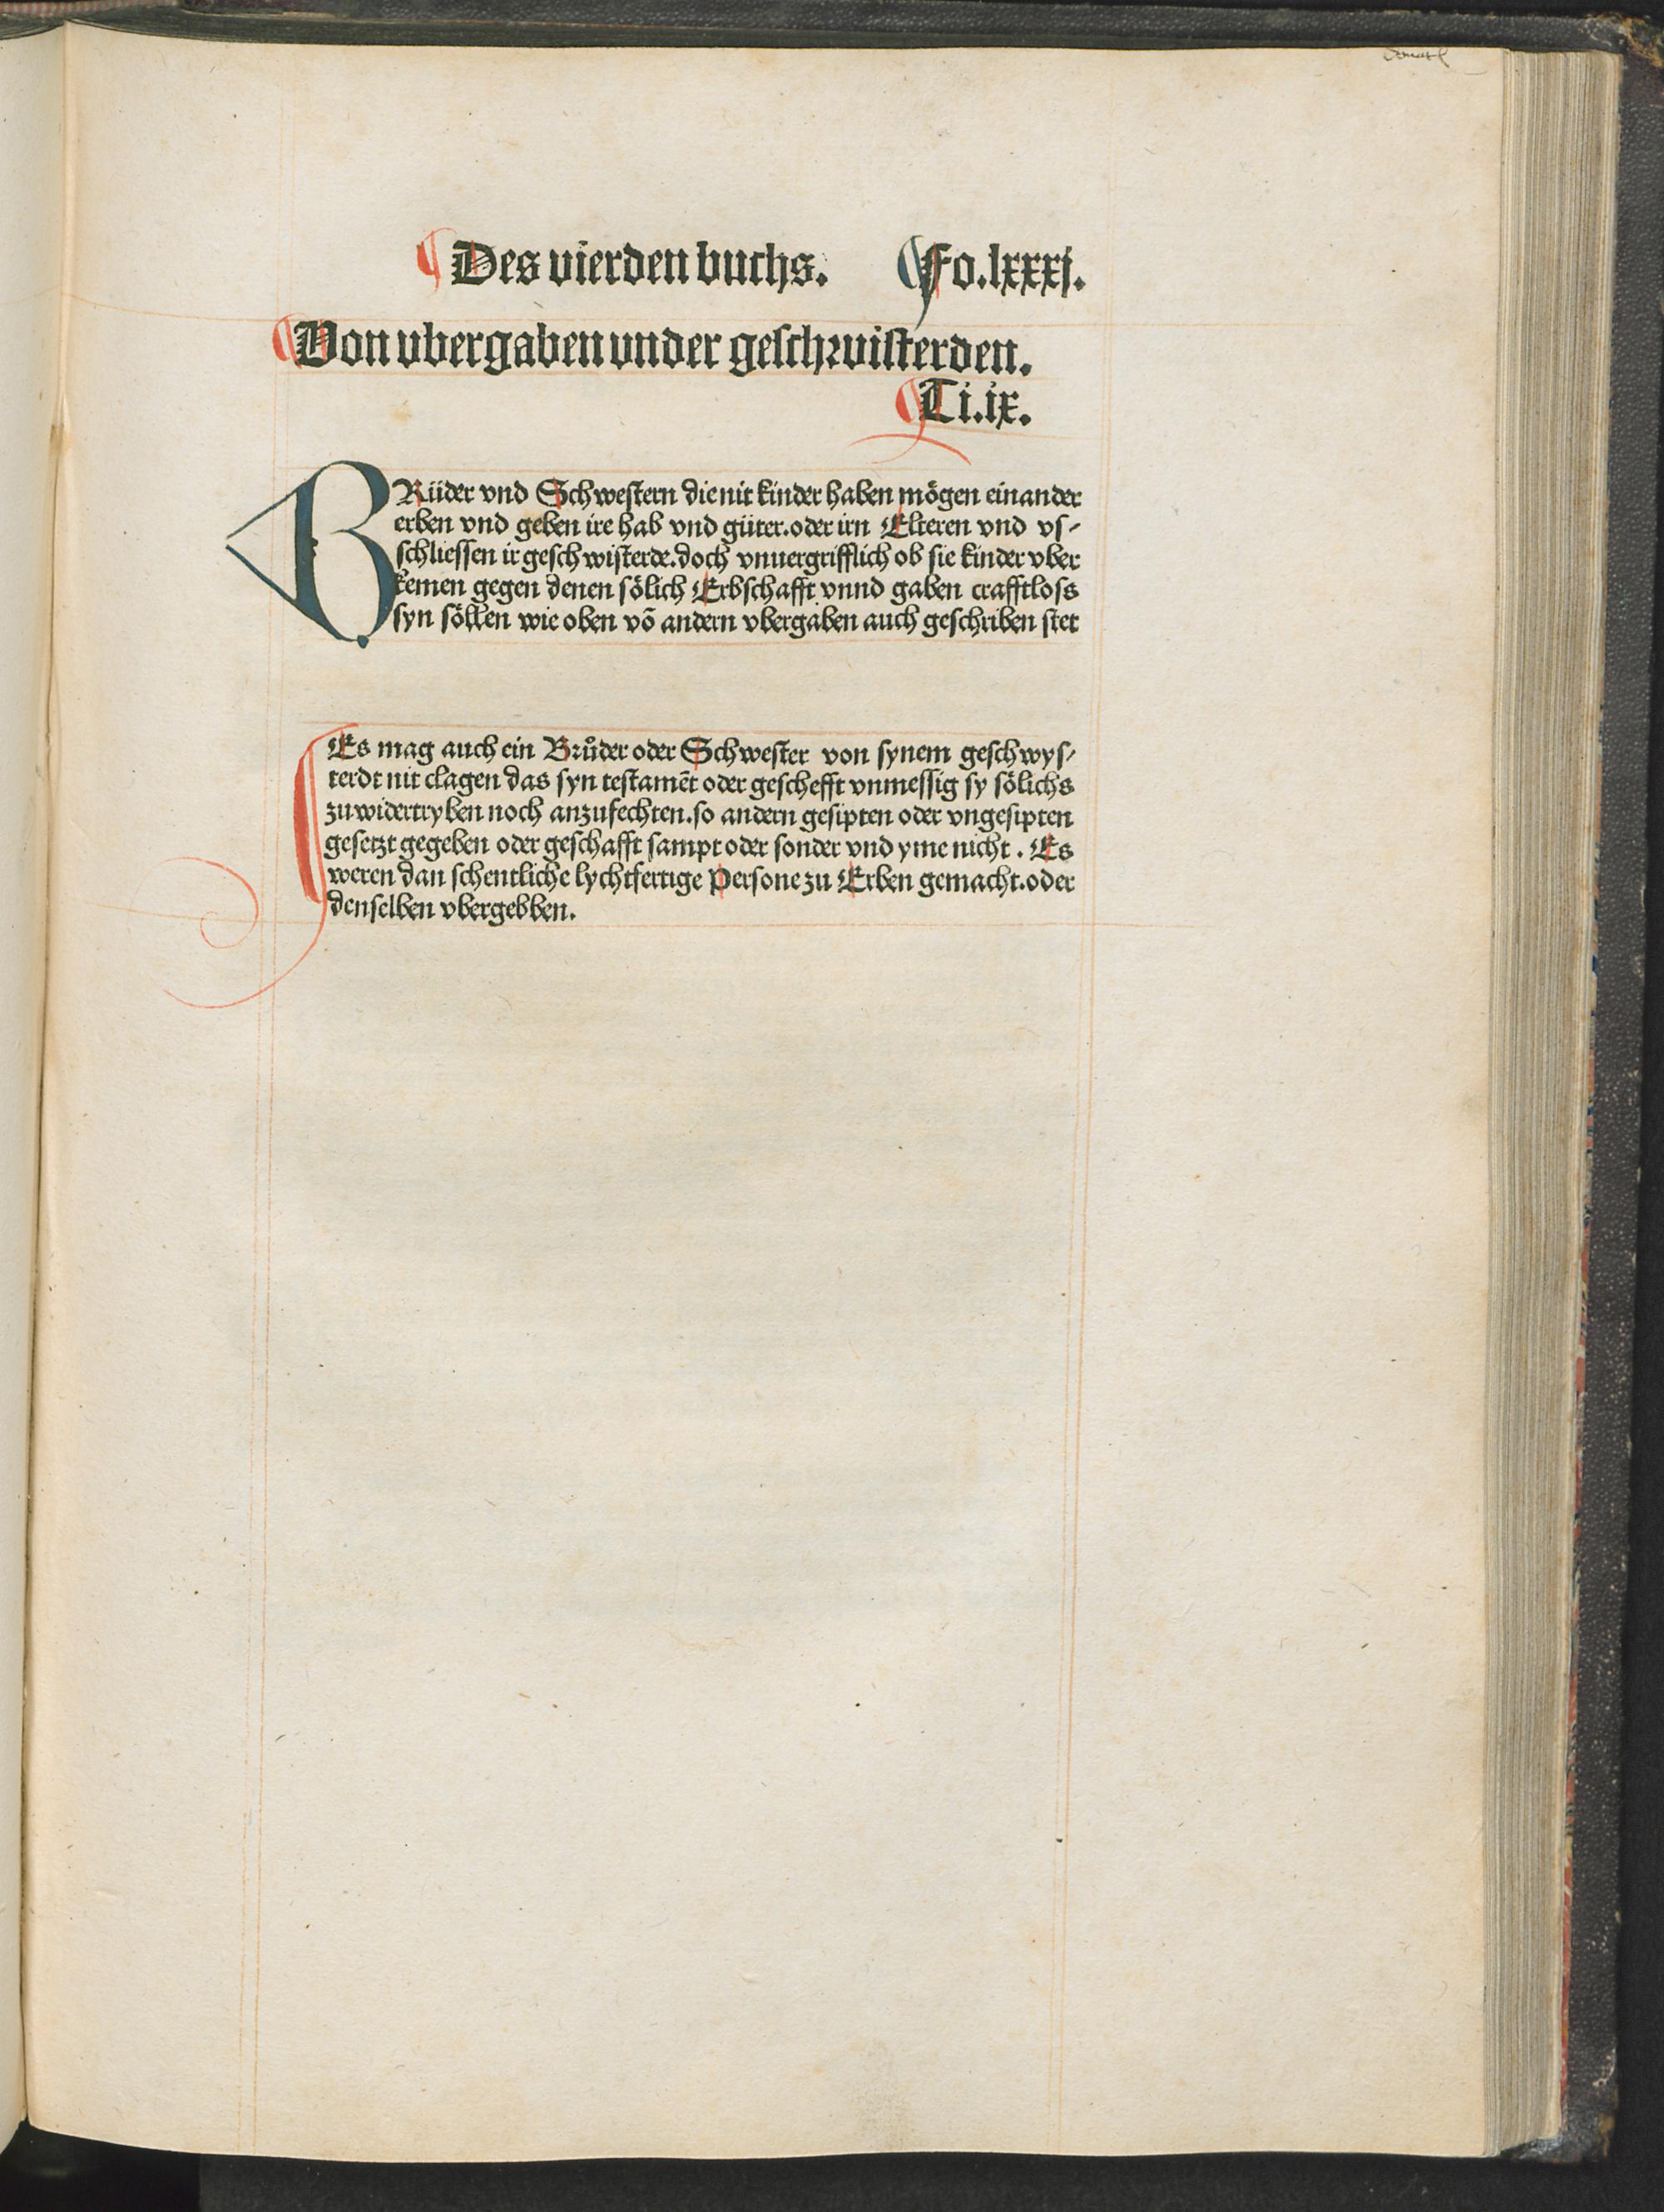 ¶ Des vierden buchs. ¶ Fo. lxxxj.
¶ Von vbergaben vnder geschwisterden.
¶ Ti. ix.
BRüder vnd Schwestern die nit kinder haben mögen einander
erben vnd geben ire hab vnd güter. oder irn Elteren vnd vs-
schliessen ir geschwisterde. doch vnuergrifflich ob sie kinder vber
kemen gegen denen sölich Erbschafft vnnd gaben crafftloss
syn söllen wie oben võ andern vbergaben auch geschriben stet
¶ Es mag auch ein Brůder oder Schwester von synem geschwys-
terdt nit clagen das syn testamẽt oder geschefft vnmessig sy sölichs
zu widertryben noch anzufechten. so andern gesipten oder vngesipten
gesetzt gegeben oder geschafft sampt oder sonder vnd yme nicht. Es
weren dan schentliche lychtfertige Persone zu Erben gemacht. oder
denselben vbergebben.